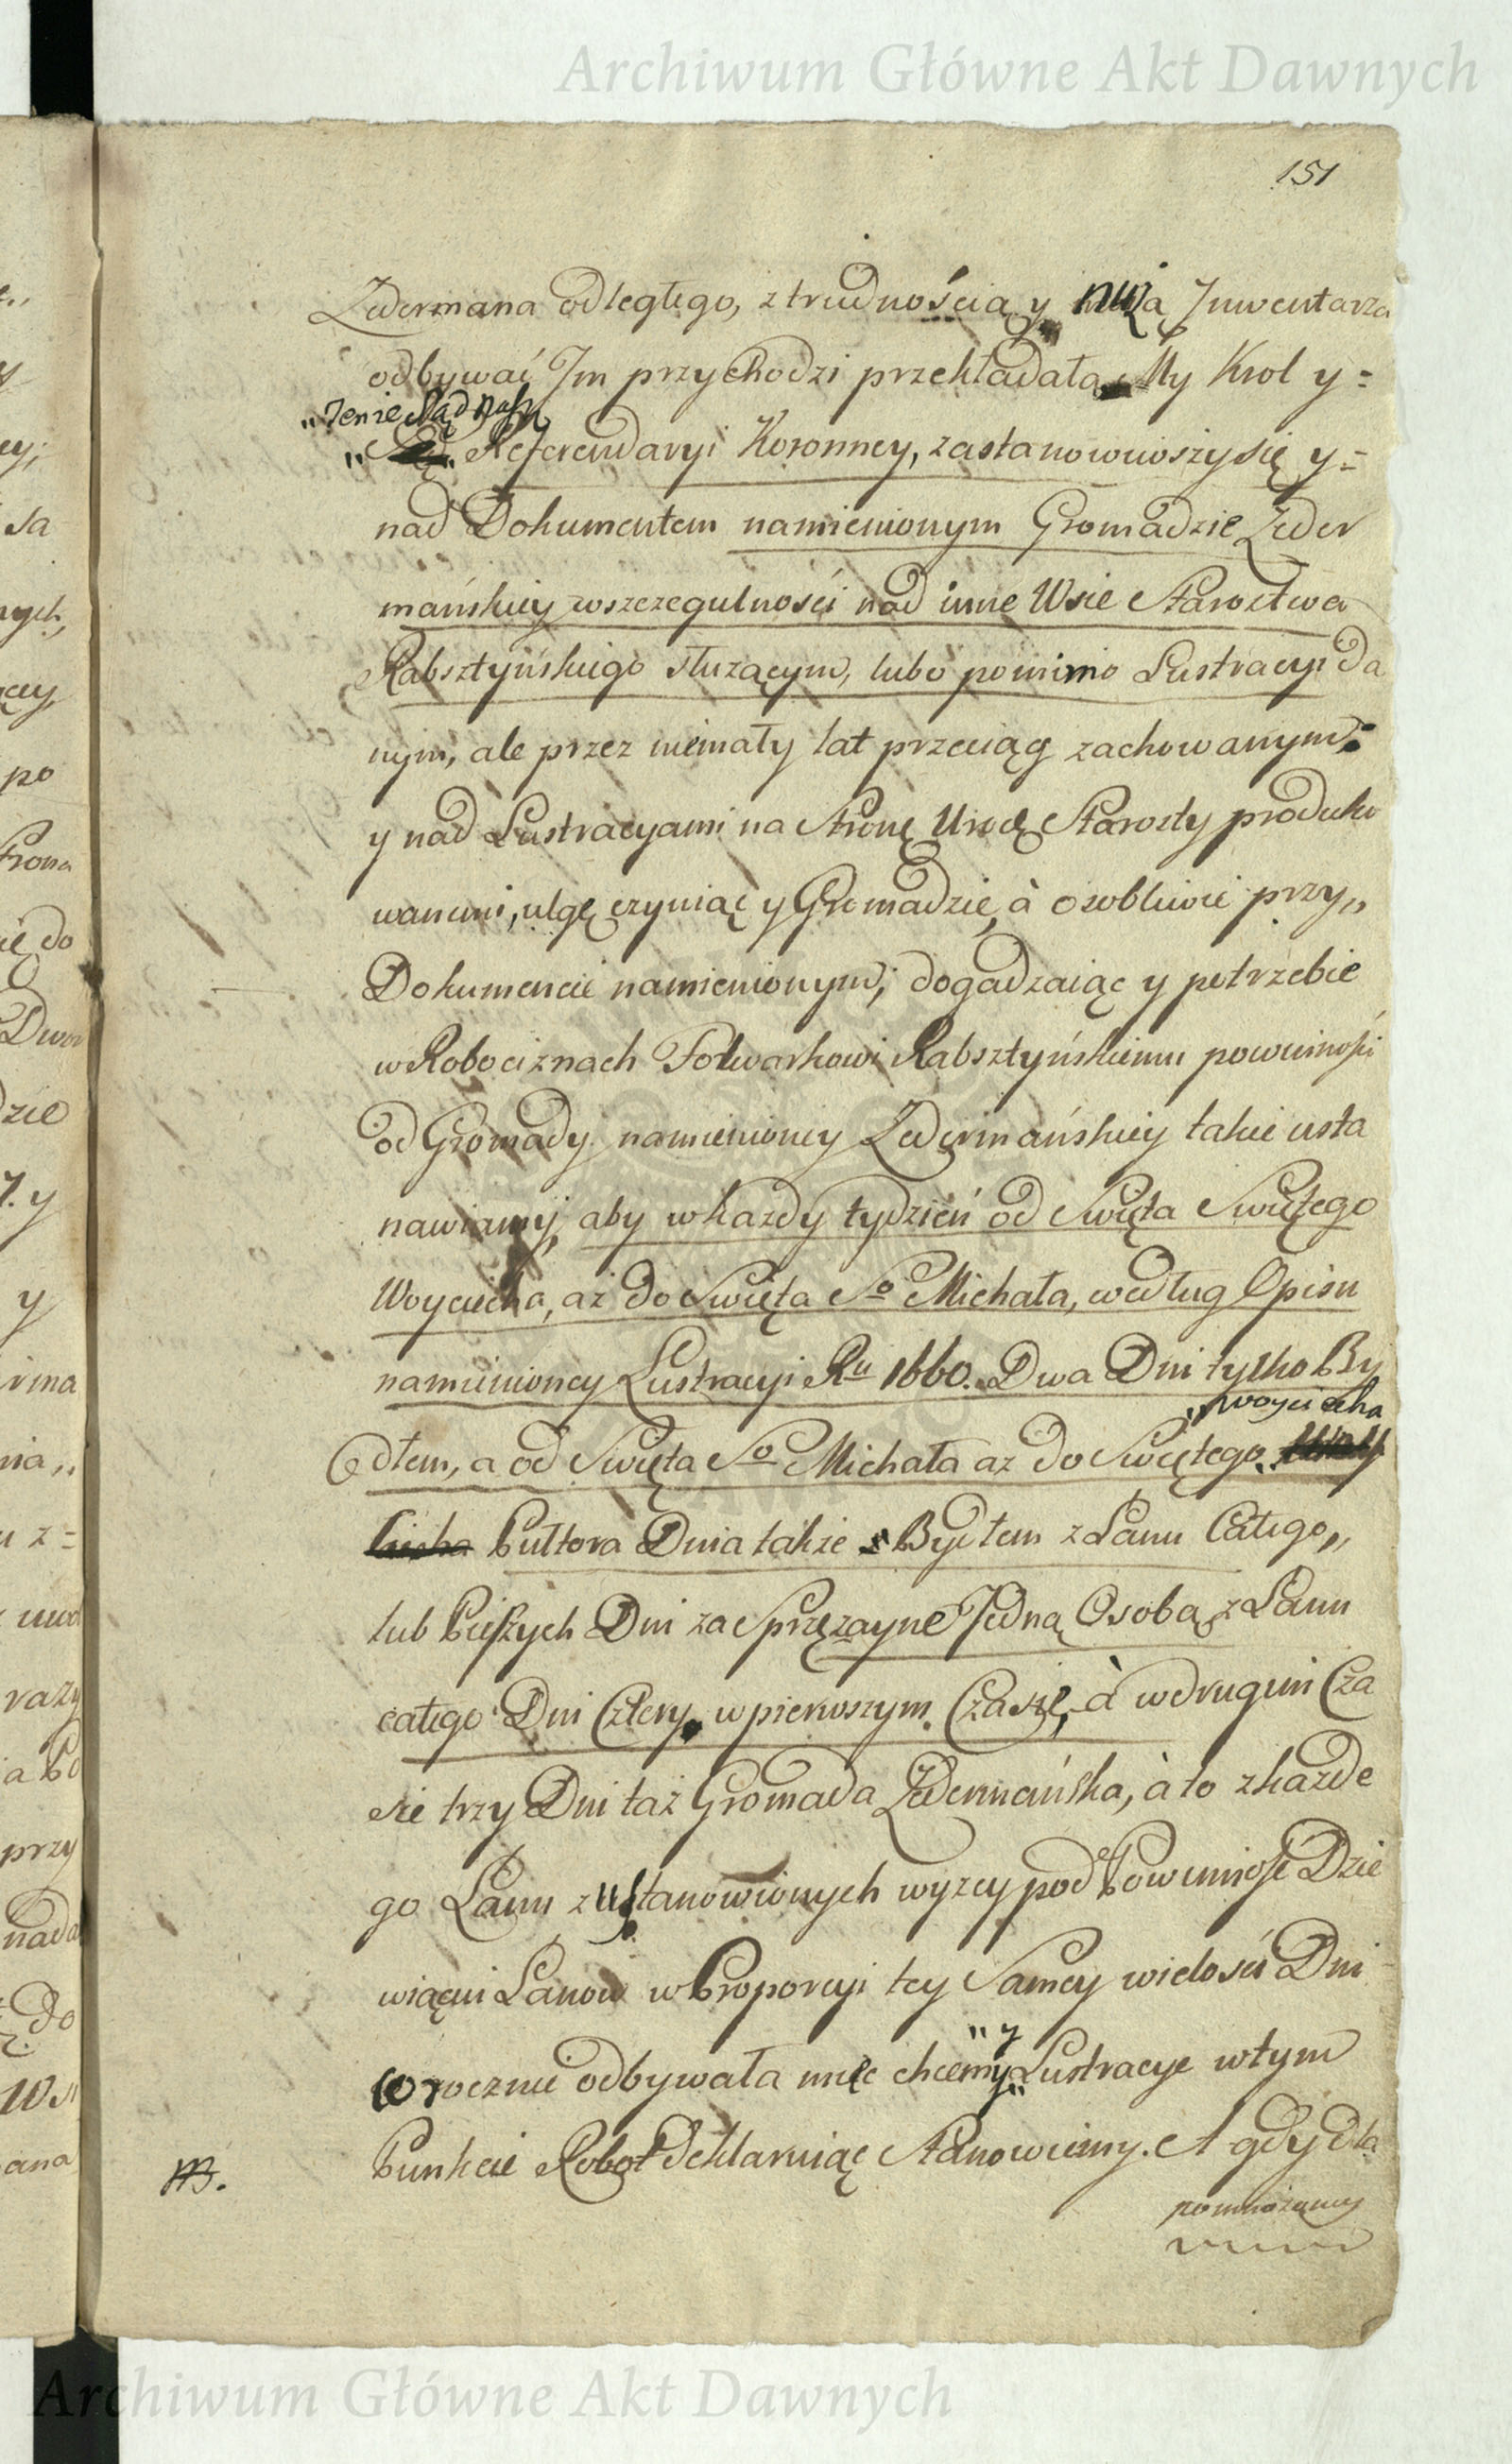 Archiwum Główne Akt Dawnych
151
Zedermana odległego, z trudnością y nużą Jnwentarza
odbywać Jm przychodzi przekładała, My Krol y=
„ Zenie Sąd nasz
„ Referendaryi Koronney, zastanowiwszy się y=
nad Dokumentem namienionym Gromadzie Zeder
mańskiey wszczegulności nad inne Wsie Starostwa
Rabsztyńskiego służącym, lubo pomimo Lustracyi da
nym, ale przez niemały lat przeciąg zachowanym;
y nad Lustracyami na Stronę Urodz Starosty produko
wanemi, ulgę czyniąc y Gromadzie, à osobliwie przy„
Dokumencie namienionym; dogadzaiąc y potrzebie
w Robociznach Folwarkowi Rabsztyńskiemu powinności
od Gromady namienioney Zedermańskiey takie usta
nawiamy, aby wkazdy tydzień od Swięta Swiętego
Woyciecha, aż do Swięta So Michała, według Opisu
namienioney Lustracyi Ru 1660. Dwa Dni tylko By
„Woyciecha
dłem, a od Swięta So Michała az do Swiętego
Pułtora Dnia takze Bydłem z Lanu Całego„
lub Pieszych Dni za Sprzęzayne Jedną Osobą z Lanu
całego Dni Cztery, w pierwszym Czasie, à wdrugim Cza
sie trzy Dni taż Gromada Zedermańska, à to zkażde
go Lanu z ustanowionych wyzey pod Powinność Dzie
wiąciu Lanow w Proporcyi tey Samey wielości Dni
„ y
Corocznie odbywała mieć chcemy„ Lustracye wtym
Punkcie Robot deklaruiąc Stanowiemy. A gdy dla
pomnożemy
Archiwum Główne Akt Dawnych